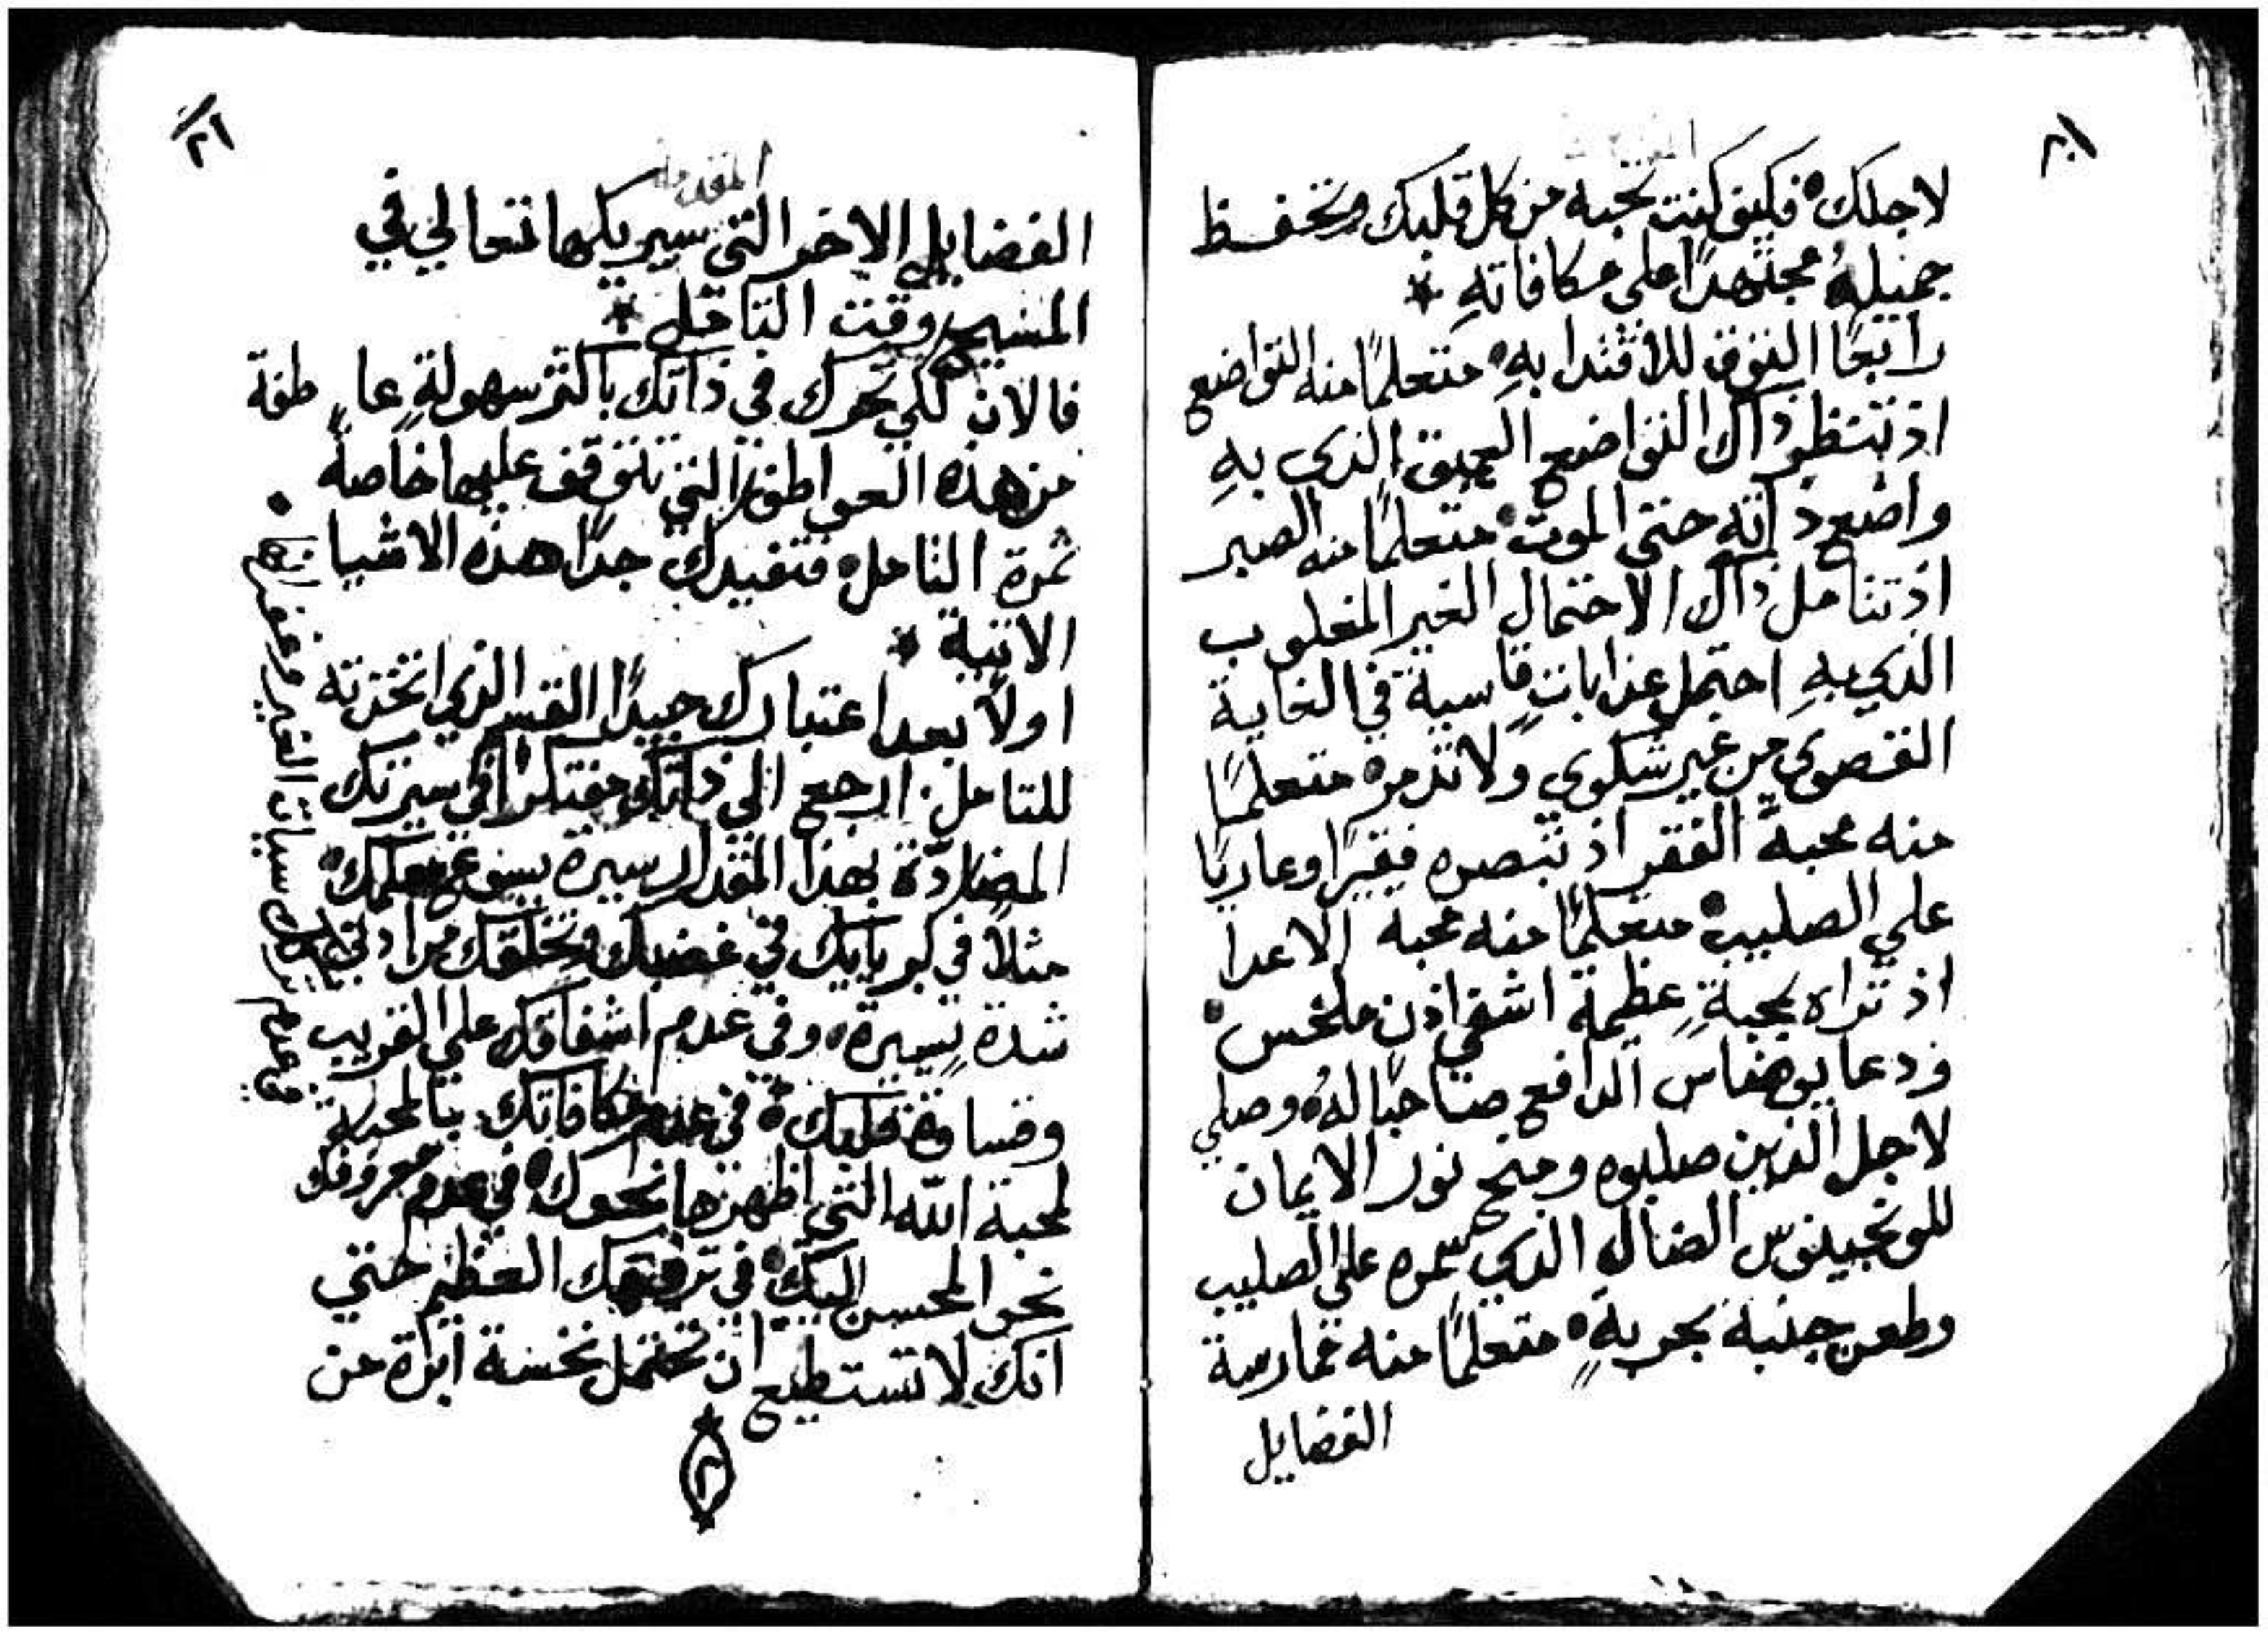 لاجلك فكيف كنت تحبه من كل قلبك وتحفظ
جميلهُ مجتهدًا علي مكافاتهِ *
رابعًا التوق للاقتدا بهِ متعلمًا منه التواضع
اذ تنظر ذاك التواضع العميق الذي بهِ
واضع ذاته حتي الموت متعلمًا منه الصبر
اذ تتامل ذاك الاحتمال الغير المغلوب
الذي بهِ احتمل عذاباتٍ قاسية في الغاية
القصوي من غير شكوي ولا تذمر متعلمًا
منه محبة الفقر اذ تبصره فقيرًا وعاريًا
علي الصليب متعلمًا منه محبة الاعدا
اذ تراه بمحبةٍ عظيمة اشفي اذن ملخس
ودعا يوضاس الدافع صاحبًا لهُ وصلي
لاجل الذين صلبوه ومنح نور الايمان
للونجينوس الضال الذي سمره علي الصليب
وطعن جنبه بحربةٍ متعلمًا منه ممارسة
الفضايل
٢١
الفضايل الاخر التي سيريكها تعالي في
المسيح وقت التامل *
فالان لكي تحرك في ذاتك باكثر سهولةٍ عاطفة
من هذه العواطف التي تتوقف عليها خاصةً
ثمرة التامل فتفيدك جدًا هذه الاشيا
الاتية *
اولاً بعد اعتبارك جيدًا القسم الذي اتخذته
للتامل ارجع الي ذاتك مفتكرًا في سيرتك
المضادّة بهذا المقدار سيرة يسوع معلمك
مثلاً في كبريايك في غضبك وتخلقك من ادني
شدة يسيرة وفي عدم اشفاقك علي القريب
وقساوة قلبك في عدم مكافاتك بالمحبة
لمحبة الله التي اظهرها نحوك في عدم معروفك
نحو المحسن اليك في ترفهك العظيم حتي
انك لا تستطيع ان تحتمل نخسة ابرة من
٢